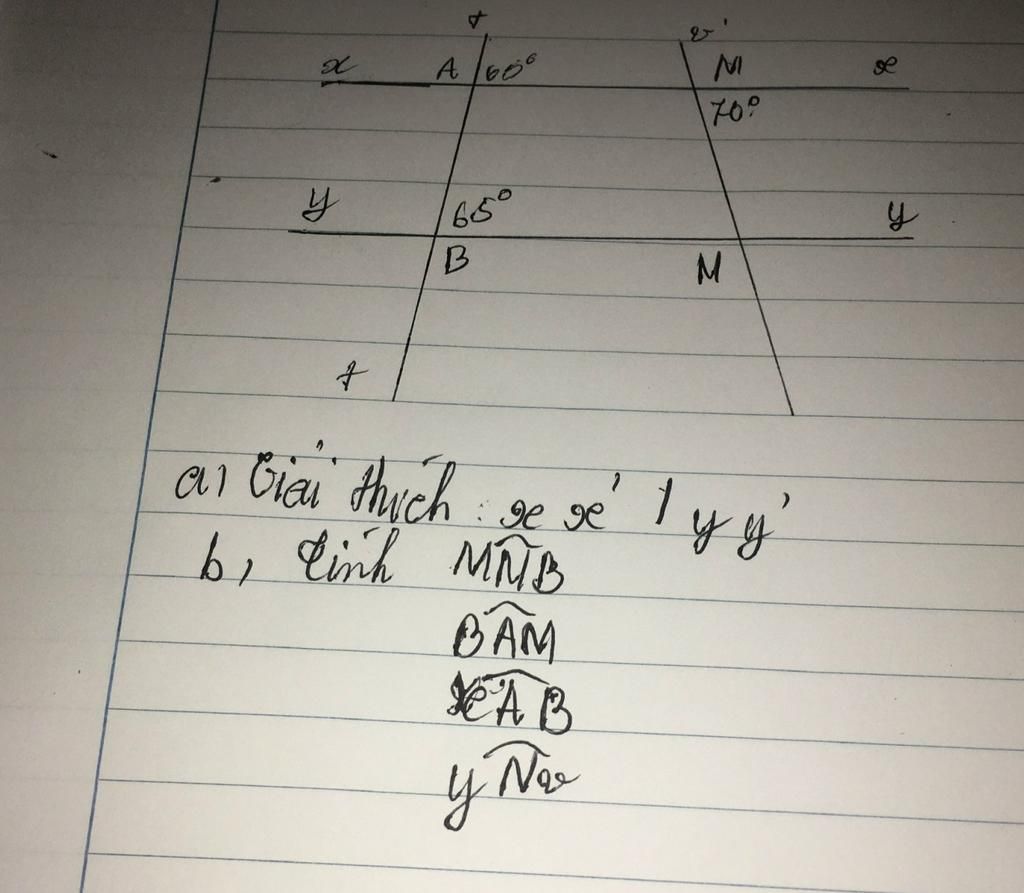 t v'
x A 60° M x
70°
y 65° y
B M
t
a) Giải thích: xx' // yy'
b, tính MNB
BAM
x'AB
yNv